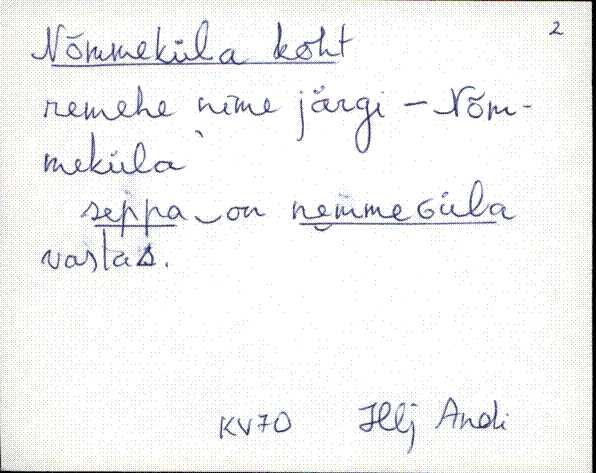 2
Nõmmeküla koht
remehe nime järgi – Nõm-
meküla
seppa on nemmeGüla
vastas.
KV70 Hlj Andi